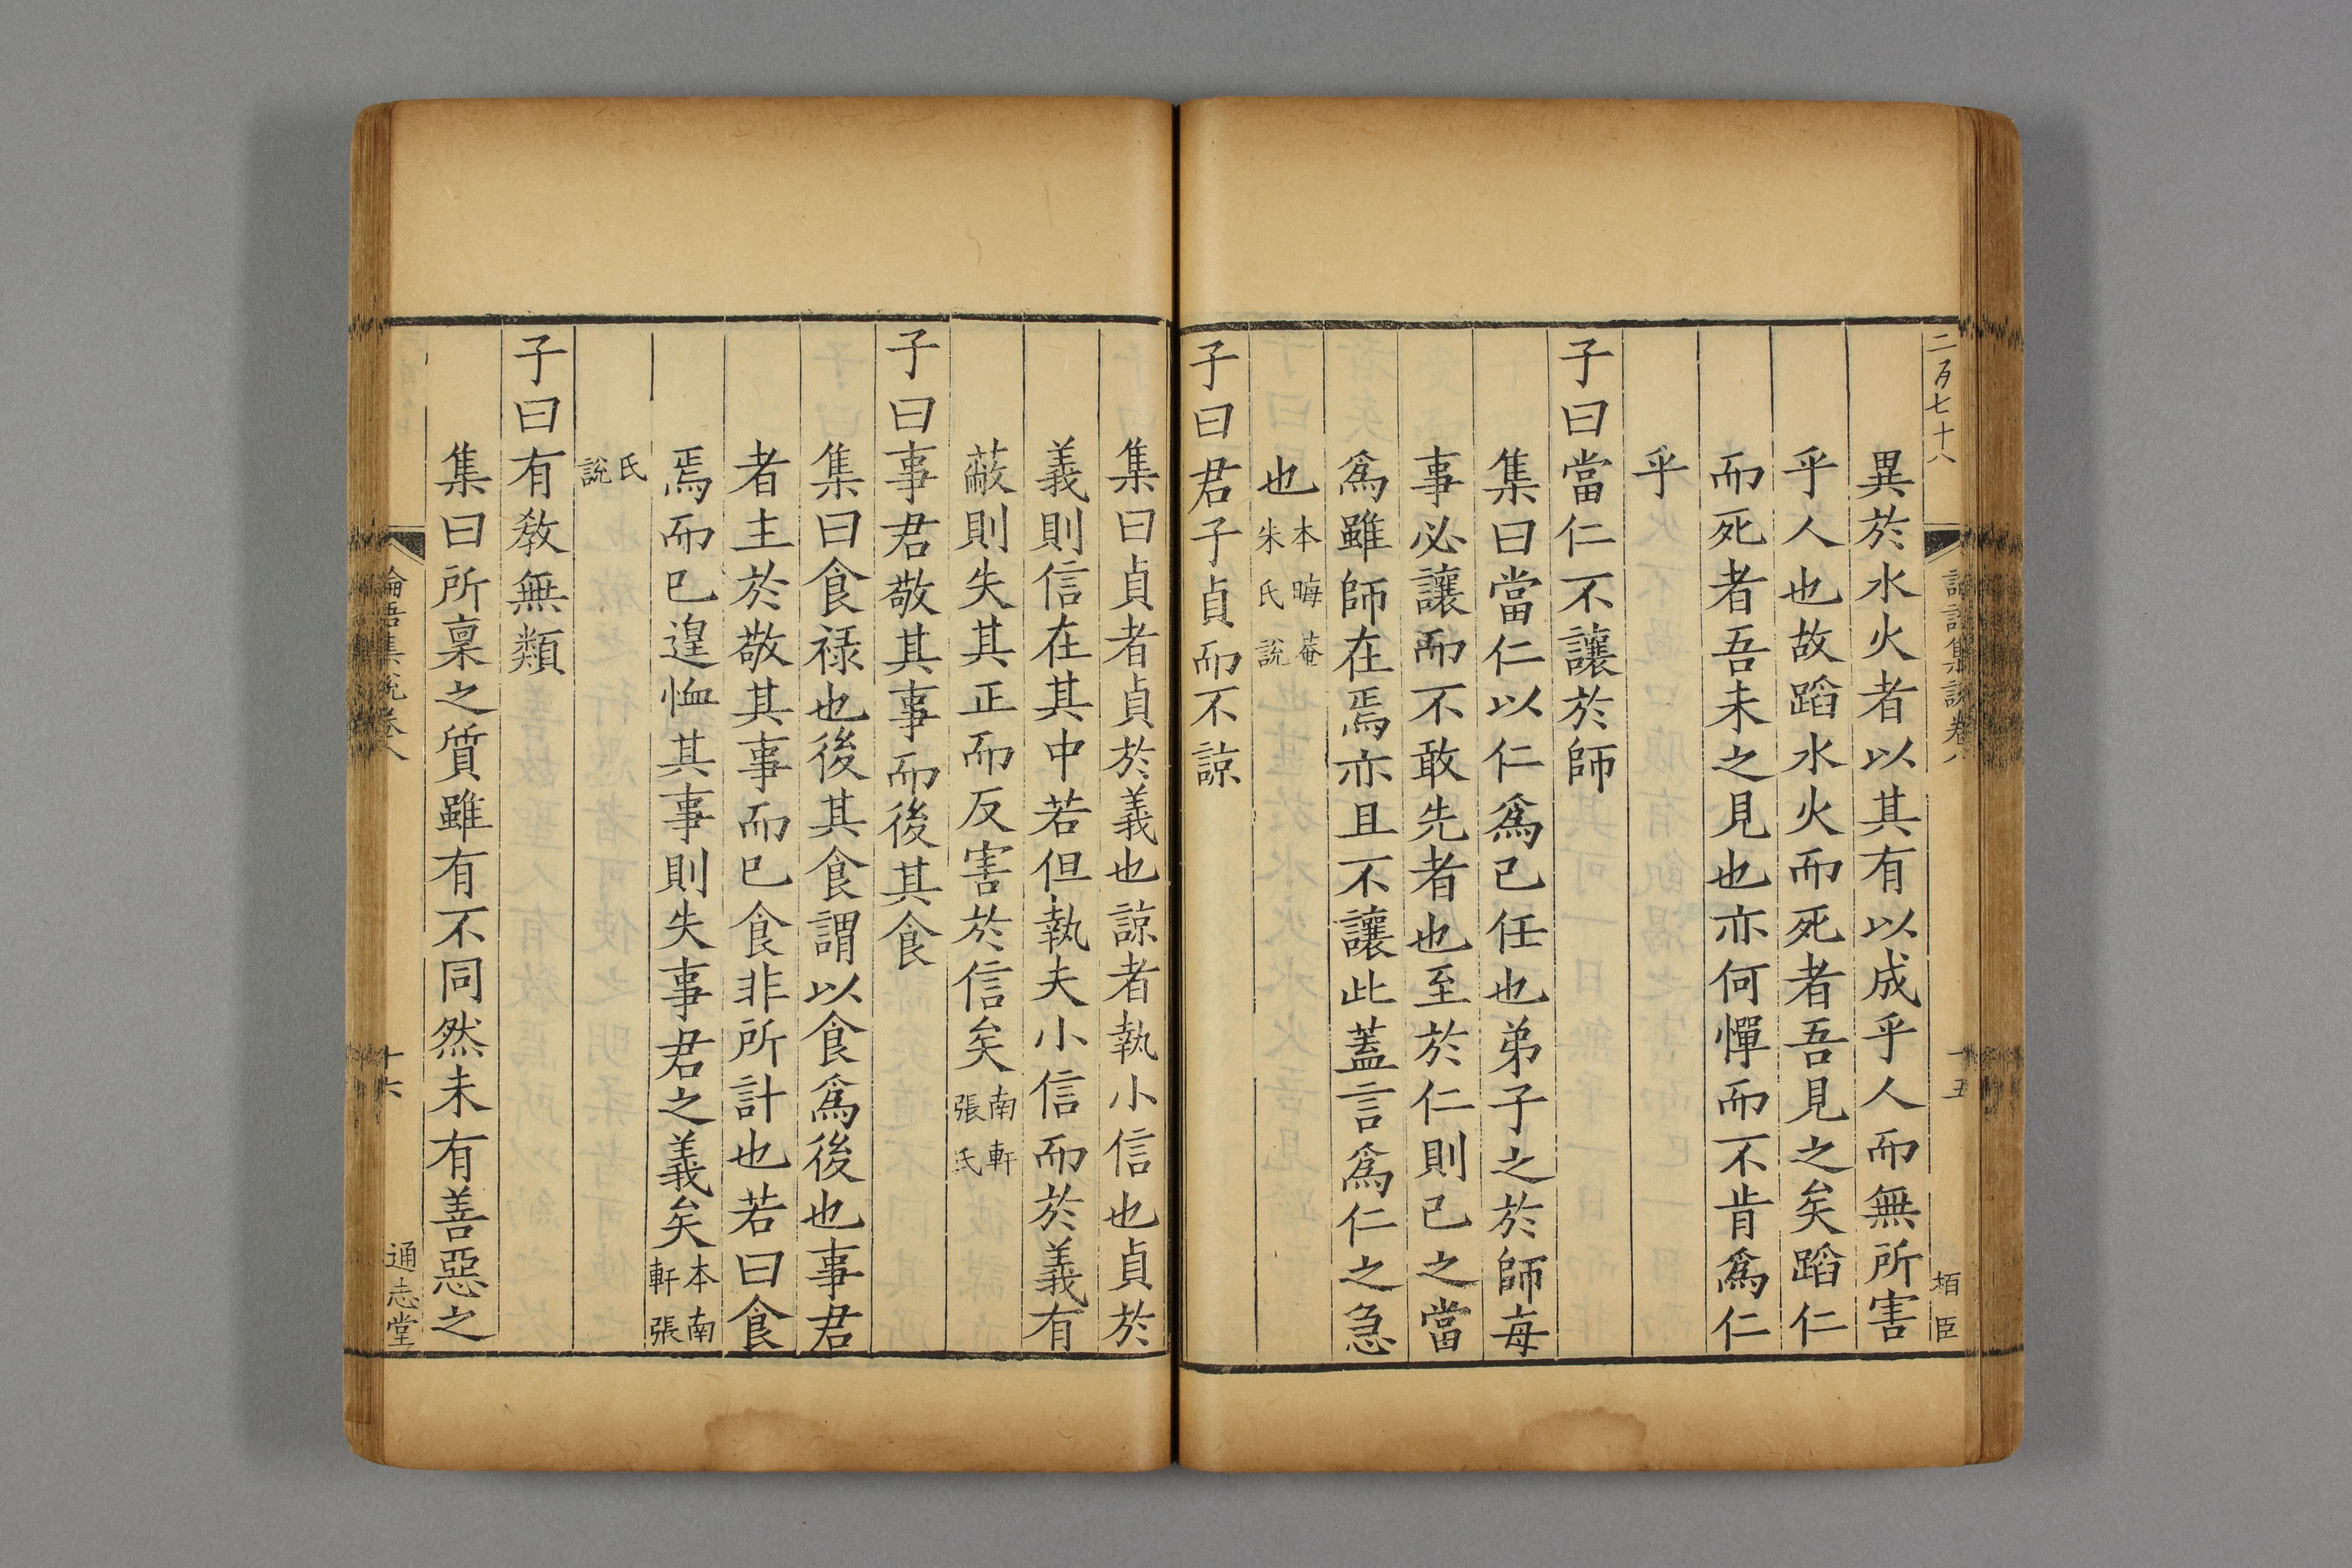 二百七十八
論語集說卷八
十五
栢臣
異於水火者以其有以成乎人而無所害
乎人也故蹈水火而死者吾見之矣蹈仁
而死者吾未之見也亦何憚而不肯爲仁
乎
子曰當仁不讓於師
集曰當仁以仁爲己任也弟子之於師每
事必讓而不敢先者也至於仁則己之當
爲雖師在焉亦且不讓此蓋言爲仁之急
也本晦菴朱氏說
子曰君子貞而不諒
集曰貞者貞於義也諒者執小信也貞於
義則信在其中若但執夫小信而於義有
蔽則失其正而反害於信矣南軒張氏
子曰事君敬其事而後其食
集曰食禄也後其食謂以食爲後也事君
者主於敬其事而已食非所計也若曰食
焉而已遑恤其事則失事君之義矣本南軒張
氏說
子曰有敎無類
集曰所稟之質雖有不同然未有善惡之
論語集說卷八
十六
通志堂